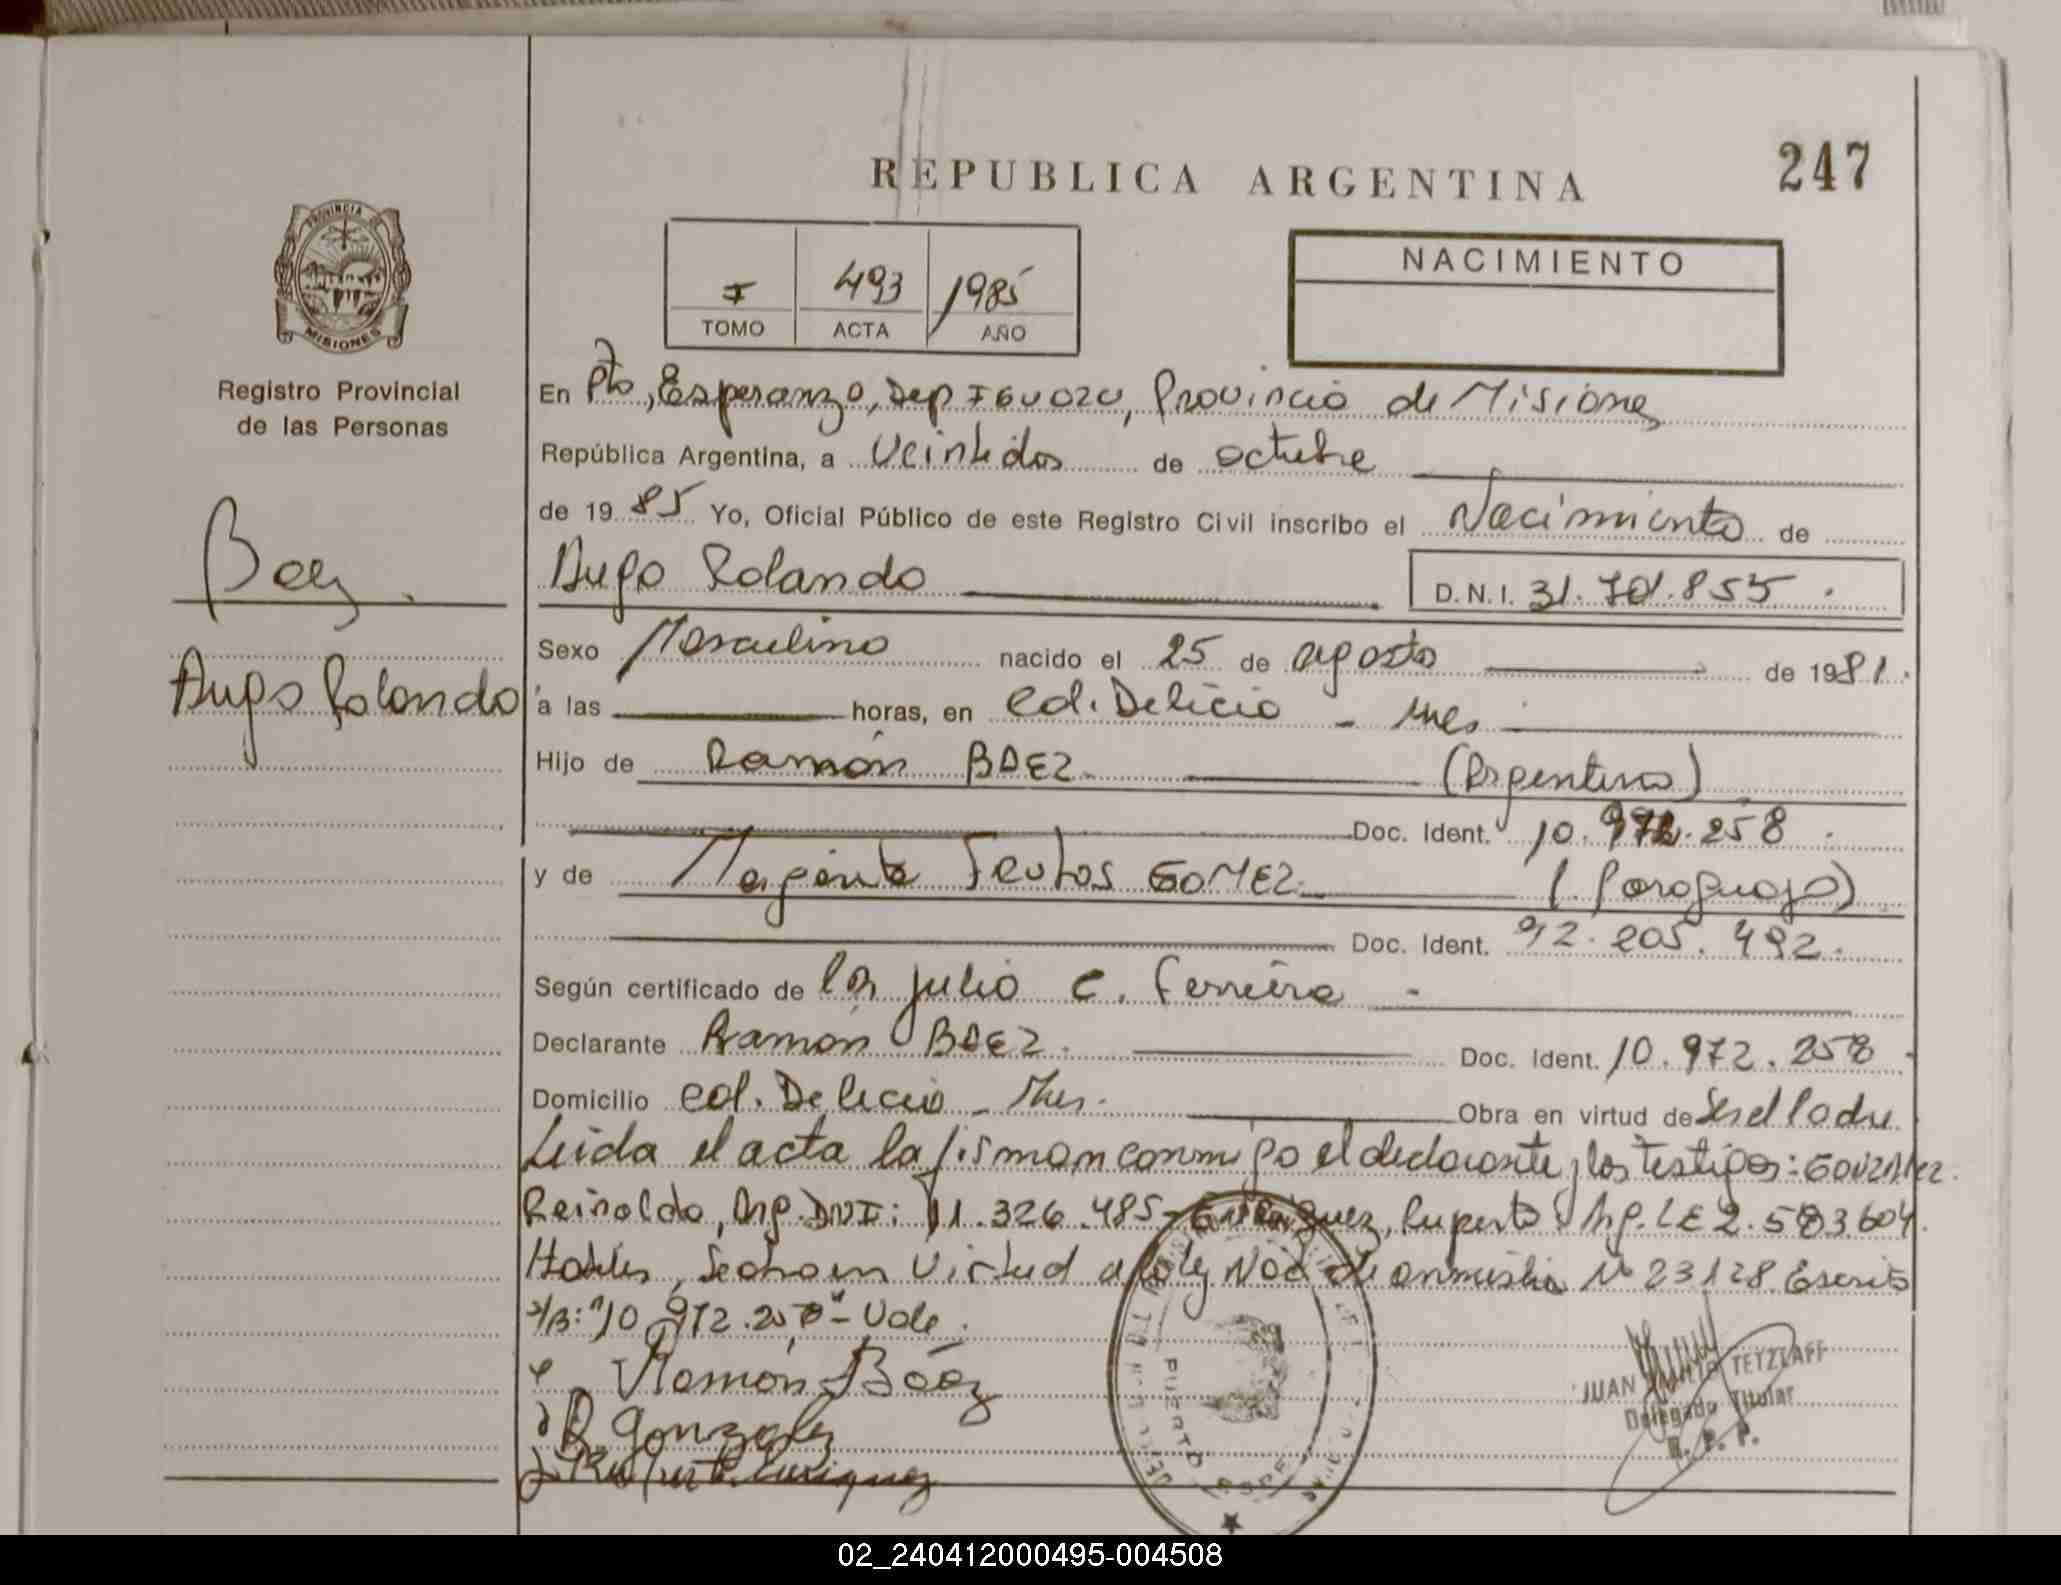 REPUBLICA ARGENTINA
247
PROVINCIA DE
MISIONES
Registro Provincial
de las Personas
I 493 1985
TOMO ACTA AÑO
NACIMIENTO
En Pto, Esperanza, Dep IGUAZU, Provincia de Misiones
República Argentina, a Veintidos de octubre
de 1985 Yo, Oficial Público de este Registro Civil inscribo el Nacimiento de
Baez.
Hugo Rolando
D.N.I. 31.701.855.
Hugo Rolando
Sexo Masculino nacido el 25 de agosto de 1981.
a las horas, en Col. Delicia - Mnes
Hijo de Ramón BAEZ. (Argentino)
Doc. Ident. 10.972.258.
y de Margarita Frutos GOMEZ. (Paraguaya)
Doc. Ident. 92.205.492.
Según certificado de Julio C. Ferreira -
Declarante Ramón BAEZ. Doc. Ident. 10.972.258.
Domicilio Col. Delicia - Mnes. Obra en virtud de Ser el Padre
Leida el acta la firman conmigo el declarante y los testigos: GONZALEZ.
Reinaldo, Arg. DNI: 11.326.485 - Enriquez, Ruperto Arg. LE 2.583.604.
Habiles, en Virtud a la ley Nac de amnistia Nº 23128. Escrito
s/B: "10.972.258" - Vale.
Ramón Báez
R Gonzalez
Ruperto Enriquez
PUERTO ESPE
JUAN TETZLAFF
Delegado Titular
R. P. P.
02_240412000495-004508